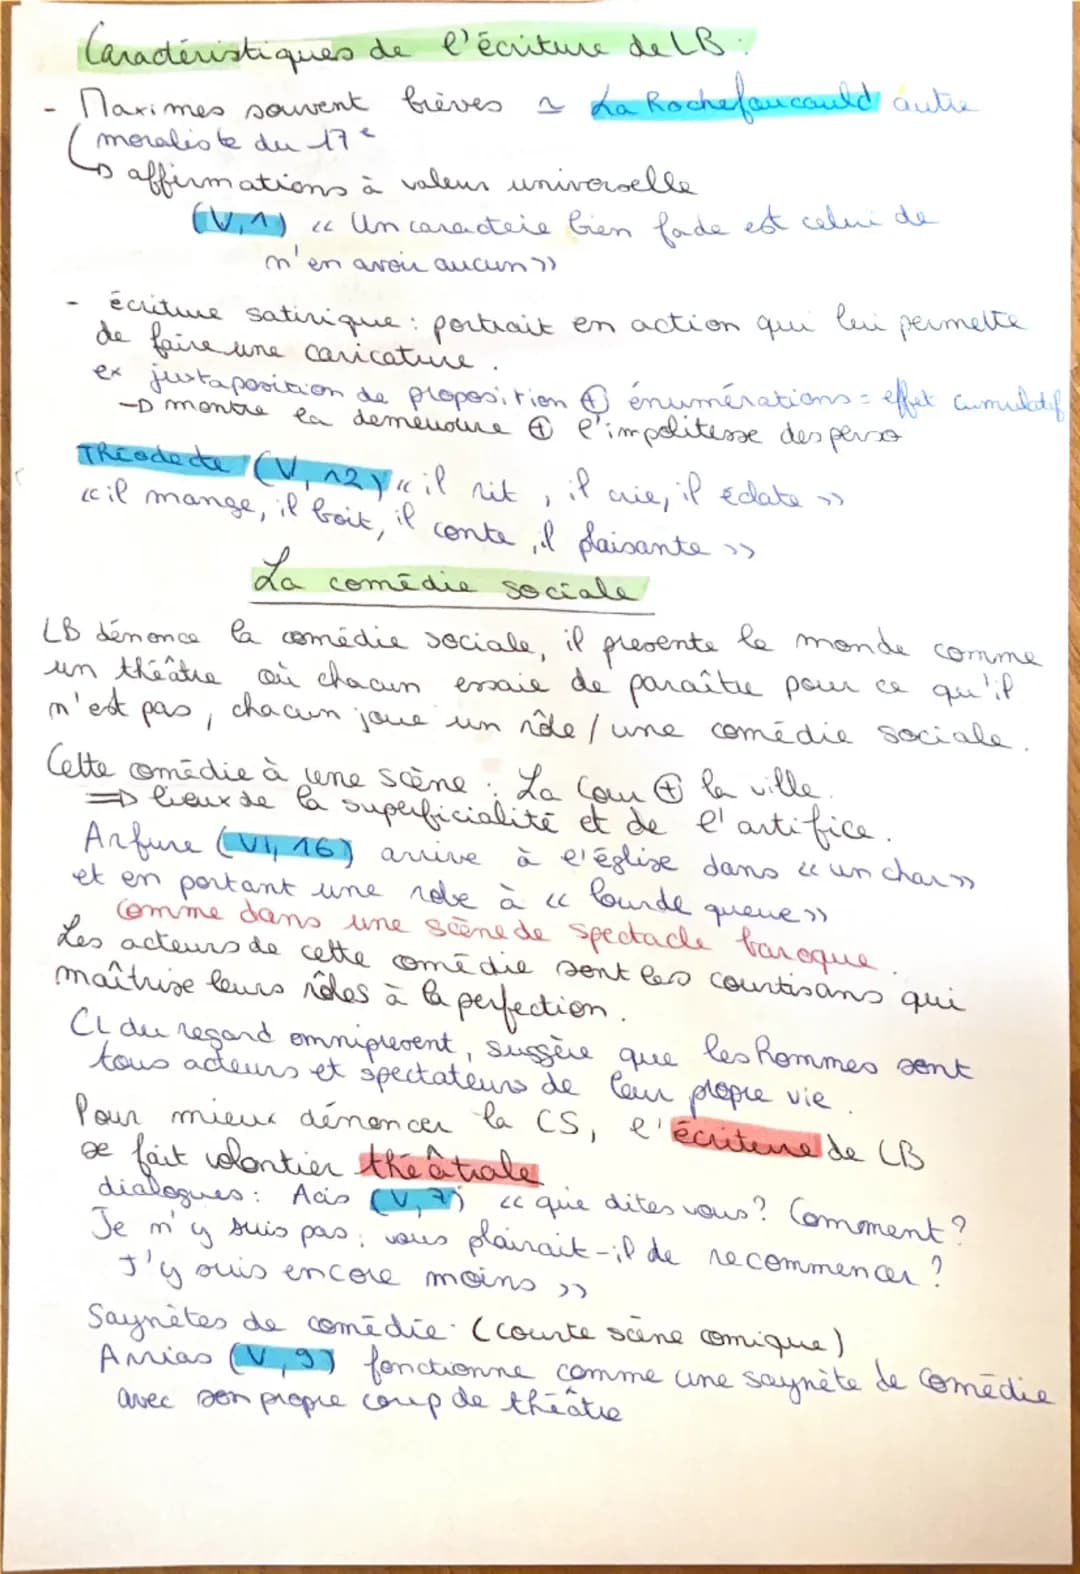 Caractéristiques de l'écriture de LB :
- Maximes souvent brèves ~ La Rochefoucauld autre
moraliste du 17e
→ affirmations à valeur universelle
(V, 1) « Un caractère bien fade est celui de
n'en avoir aucun »
- écriture satirique : portrait en action qui lui permette
de faire une caricature.
ex juxtaposition de proposition ⊕ énumérations = effet cumulatif
→ montre la demeusure ⊕ l'impolitesse des perso
Théodecte (V, 12) « il rit, il crie, il éclate »
« il mange, il boit, il conte, il plaisante »
La comédie sociale
LB dénonce la comédie sociale, il présente le monde comme
un théâtre où chacun essaie de paraître pour ce qu'il
n'est pas, chacun joue un rôle / une comédie sociale.
Cette comédie à une scène : La Cour ⊕ la ville.
⇒ lieux de la superficialité et de l'artifice.
Arfure (VI, 16) arrive à l'église dans « un char »
et en portant une robe à « lourde queue »
comme dans une scène de spectacle baroque.
Les acteurs de cette comédie sont les courtisans qui
maîtrise leurs rôles à la perfection.
CL du regard omniprésent, suggère que les hommes sont
tous acteurs et spectateurs de leur propre vie.
Pour mieux dénoncer la CS, l'écriture de LB
se fait volontier théâtrale
dialogues : Acis (V, 7) « que dites vous ? Comment ?
Je n'y suis pas ; vous plairait-il de recommencer ?
J'y suis encore moins »
Saynètes de comédie (courte scène comique)
Arrias (V, 9) fonctionne comme une saynète de comédie
avec son propre coup de théâtre